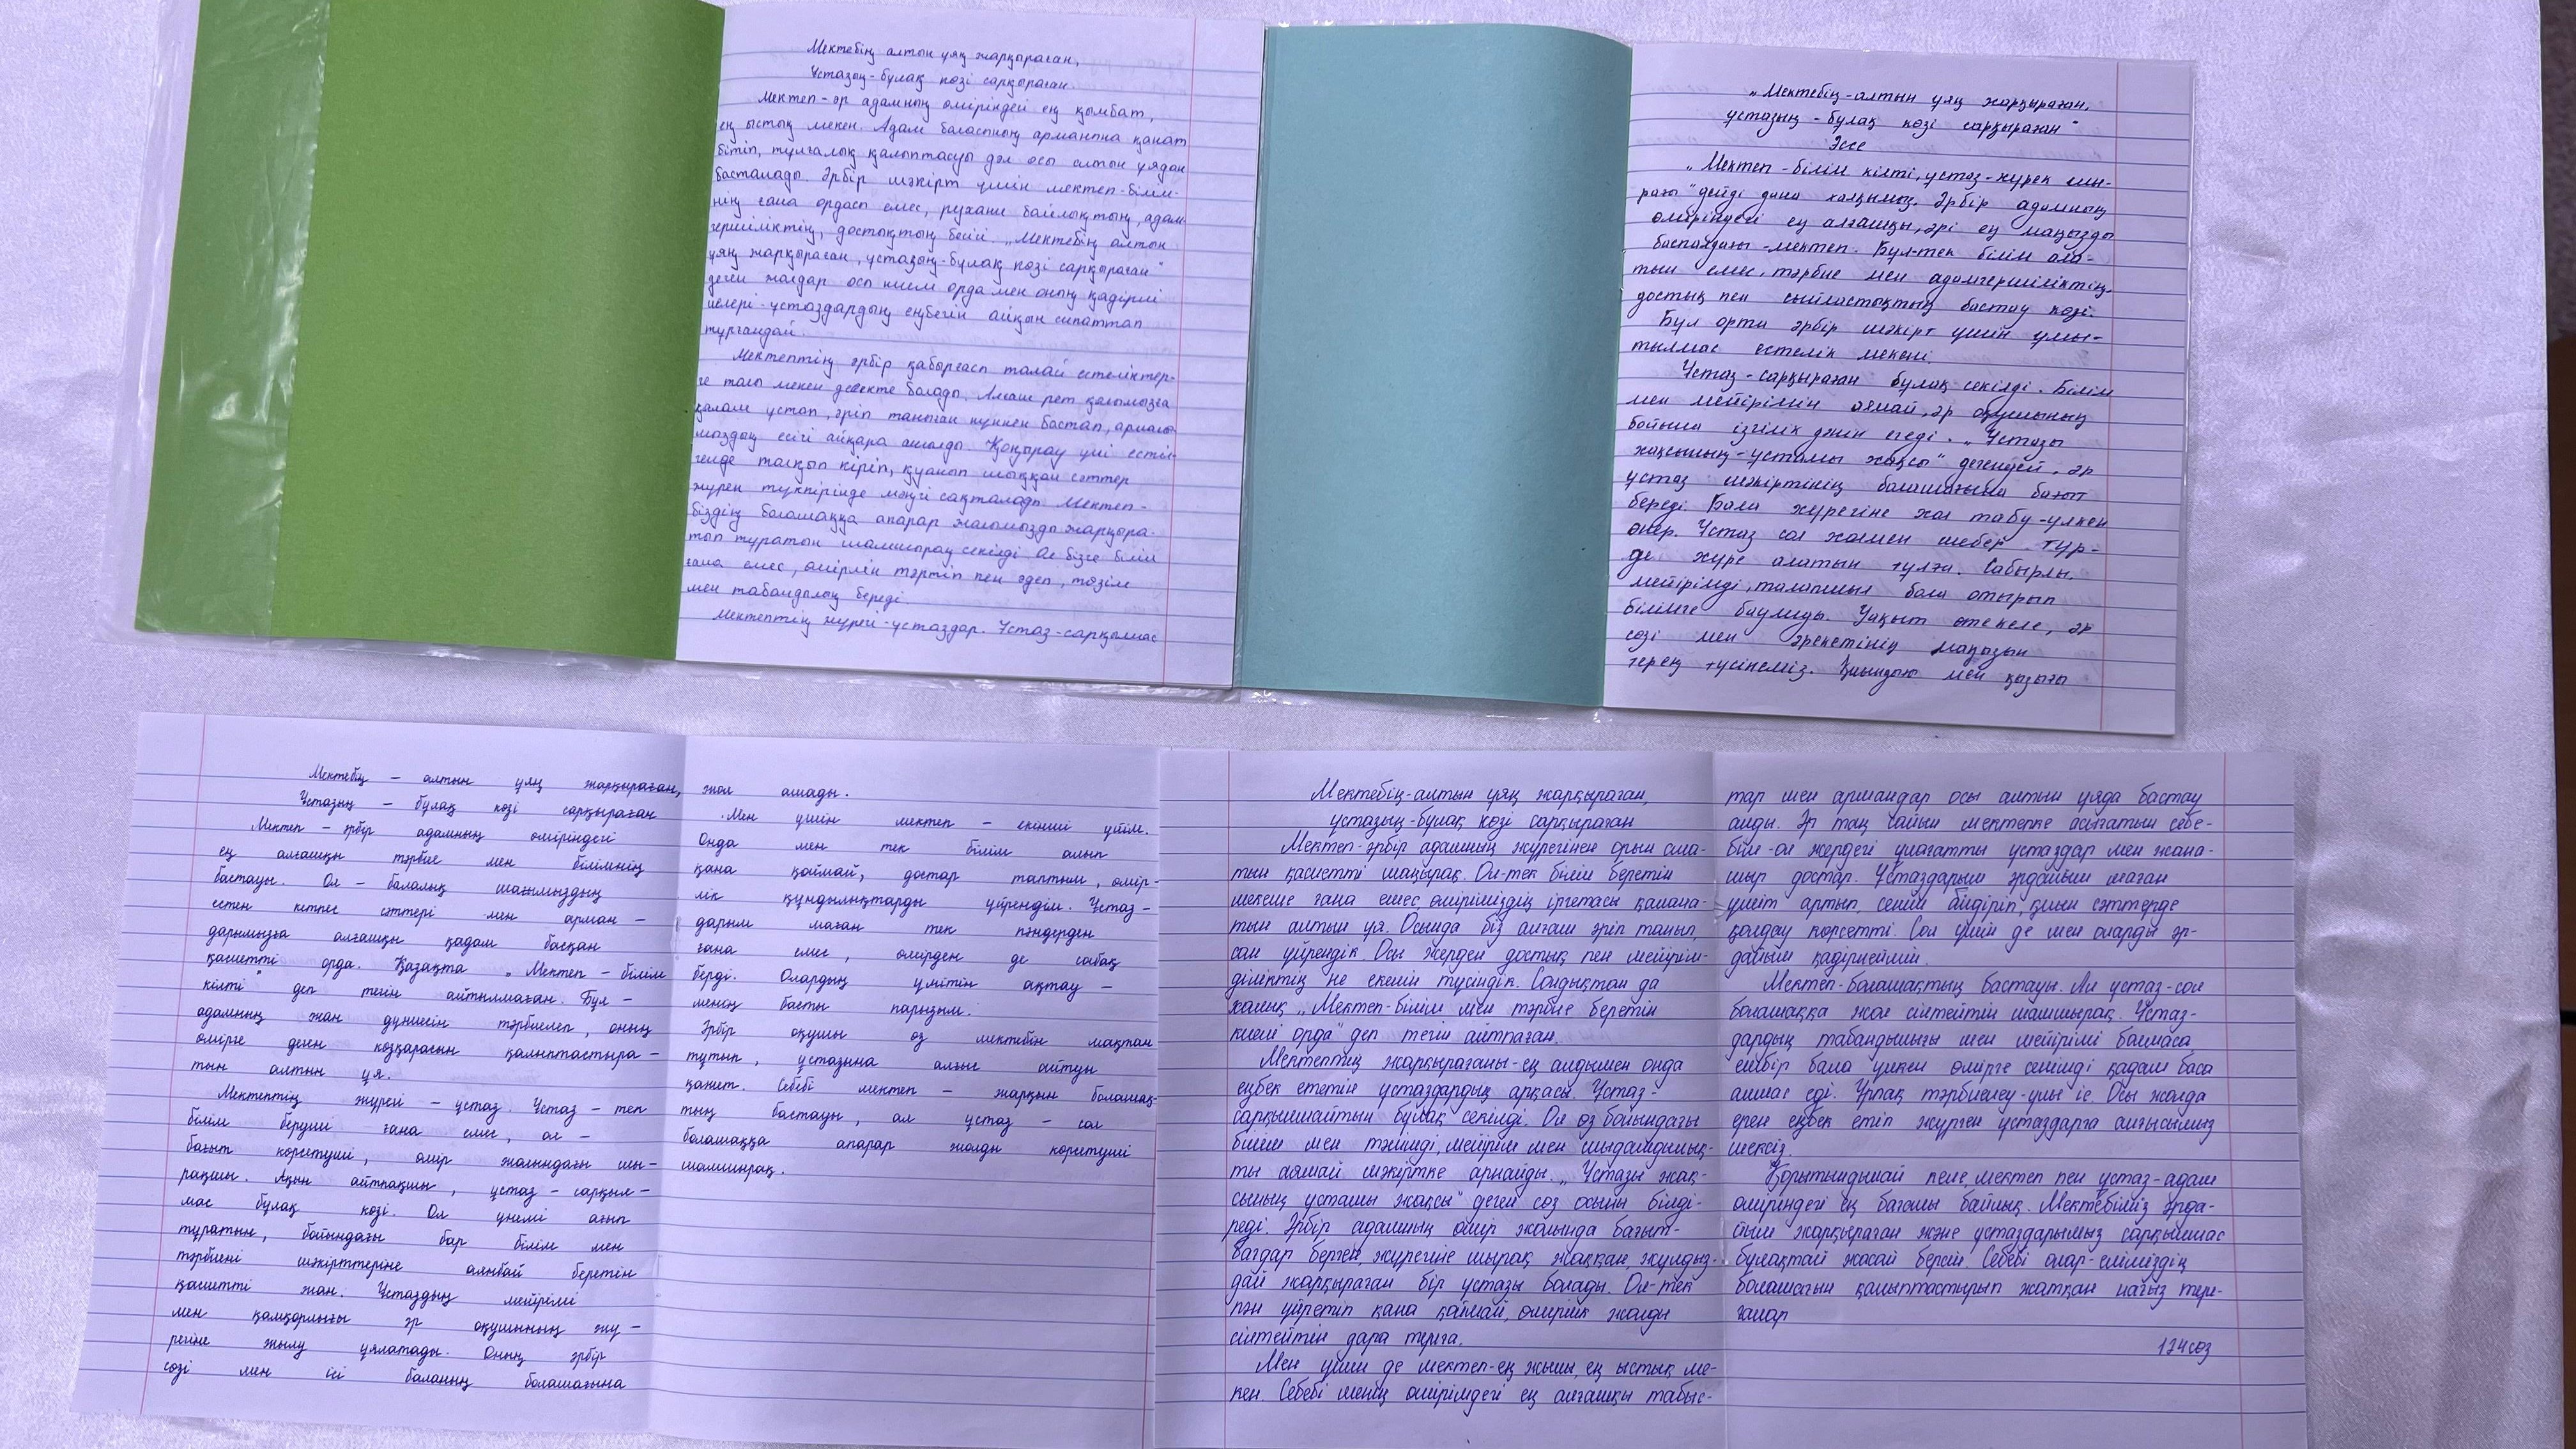 Мектебің алтын ұяң жарқыраған,
Ұстазың-бұлақ көзі сарқыраған.
Мектеп-әр адамның өміріндей ең қымбат,
ең ыстық мекен. Адам баласының арманына қанат
бітіп, тұлғалық қалыптасуы дәл осы алтын ұядан
басталады. Әрбір шәкірт үшін мектеп-білім-
нің ғана ордасы емес, рухани байлықтың, адам-
гершіліктің, достықтың бесігі. „Мектебің алтын
ұяң жарқыраған, ұстазың-бұлақ көзі сарқыраған"
деген жолдар осы киелі орда мен оның қадірлі
иелері-ұстаздардың еңбегін айқын сипаттап
тұрғандай.
Мектептің әрбір қабырғасы талай естеліктер-
ге толы мекен десекте болады. Алғаш рет қолымызға
қалам ұстап, әріп таныған күннен бастап, арманы-
мыздың есігі айқара ашылды. Қоңырау үні естіл-
генде толқып кіріп, қуанып шыққан сәттер
жүрек түкпірінде мәңгі сақталады. Мектеп-
біздің болашаққа апарар жолымызды жарқыра-
тып тұратын шамшырақ секілді. Ол бізге білім
ғана емес, өмірлік тәртіп пен әдеп, төзім
мен табандылық береді.
Мектептің жүрегі-ұстаздар. Ұстаз-сарқылмас
„Мектебің-алтын ұяң жарқыраған,
ұстазың-бұлақ көзі сарқыраған"
Эссе
„Мектеп-білім кілті, ұстаз-жүрек шы-
рағы" дейді дана халқымыз. Әрбір адамның
өміріндегі ең алғашқы, әрі ең маңызды
баспалдағы-мектеп. Бұл-тек білім ала-
тын емес, тәрбие мен адамгершіліктің,
достық пен сыйластықтың бастау көзі.
Бұл орта әрбір шәкірт үшін ұмы-
тылмас естелік мекені.
Ұстаз-сарқыраған бұлақ секілді. Білім
мен мейірімін аямай, әр оқушының
бойына ізгілік дәнін егеді. „Ұстазы
жақсының-ұстамы жақсы" дегендей, әр
ұстаз шәкіртінің болашағына бағыт
береді. Бала жүрегіне жол табу-үлкен
өнер. Ұстаз сол жолмен шебер түр-
де жүре алатын тұлға. Сабырлы,
мейірімді, талапшыл бола отырып
білімге баулиды. Уақыт өте келе, әр
сөзі мен әрекетінің маңызын
терең түсінеміз. Қиындығы мен қызығы
Мектебің – алтын ұяң жарқыраған,
Ұстазың – бұлақ көзі сарқыраған
Мектеп – әрбір адамның өміріндегі
ең алғашқы тәрбие мен білімнің
бастауы. Ол – балалық шағымыздың
естен кетпес сәттері мен арман –
дарымызға алғашқы қадам басқан
қасиетті орда. Қазақта „Мектеп – білім
кілті" деп тегін айтылмаған. Бұл –
адамның жан дүниесін тәрбиелеп, оның
өмірге деген көзқарасын қалыптастыра –
тын алтын ұя.
Мектептің жүрегі – ұстаз. Ұстаз – тек
білім беруші ғана емес, ол –
бағыт көрсетуші, өмір жолындағы шы –
рақшы. Ақын айтпақшы, ұстаз – сарқыл –
мас бұлақ көзі. Ол үнемі ағып
тұратын, бойындағы бар білім мен
тәрбиені шәкірттеріне аянбай беретін
қасиетті жан. Ұстаздың мейірімі
мен қамқорлығы әр оқушының жү –
регіне жылу ұялатады. Оның әрбір
сөзі мен ісі баланың болашағына
жол ашады.
Мен үшін мектеп – екінші үйім.
Онда мен тек білім алып
қана қоймай, достар таптым, өмір –
лік құндылықтарды үйрендім. Ұстаз –
дарым маған тек пәндерден
ғана емес, өмірден де сабақ
берді. Олардың үмітін ақтау –
менің басты парызым.
Әрбір оқушы өз мектебін мақтан
тұтып, ұстазына алғыс айтуы
қажет. Себебі мектеп – жарқын болашақ –
тың бастауы, ал ұстаз – сол
болашаққа апарар жолды көрсетуші
шамшырақ.
Мектебің-алтын ұяң жарқыраған,
ұстазың-бұлақ көзі сарқыраған
Мектеп-әрбір адамның жүрегінен орын ала-
тын қасиетті шаңырақ. Ол-тек білім беретін
мекеме ғана емес, өміріміздің іргетасы қалана-
тын алтын ұя. Осында біз алғаш әріп танып,
сан үйрендік. Осы жерден достық пен мейірім-
діліктің не екенін түсіндік. Сондықтан да
халық „Мектеп-білім мен тәрбие беретін
киелі орда" деп тегін айтпаған.
Мектептің жарқырағаны-ең алдымен онда
еңбек ететін ұстаздардың арқасы. Ұстаз-
сарқылмайтын бұлақ секілді. Ол өз бойындағы
білім мен тәлімді, мейірім мен шыдамдылық-
ты аямай шәкіртке арнайды. „Ұстазы жақ-
сының ұстамы жақсы" деген сөз осыны білді-
реді. Әрбір адамның өмір жолында бағыт-
бағдар берген, жүрегіне шырақ жаққан, жұлдыз-
дай жарқыраған бір ұстазы болады. Ол-тек
пән үйретіп қана қоймай, өмірлік жолды
сілтейтін дара тұлға.
Мен үшін де мектеп-ең жылы, ең ыстық ме-
кен. Себебі менің өмірімдегі ең алғашқы табыс-
тар мен армандар осы алтын ұяда бастау
алды. Әр таң сайын мектепке асығатын себе-
бім-ол жердегі ұлағатты ұстаздар мен жана-
шыр достар. Ұстаздарым әрдайым маған
үміт артып, сенім білдіріп, қиын сәттерде
қолдау көрсетті. Сол үшін де мен оларды әр-
дайым қадірлеймін.
Мектеп-болашақтың бастауы. Ал ұстаз-сол
болашаққа жол сілтейтін шамшырақ. Ұстаз-
дардың табандылығы мен мейірімі болмаса
ешбір бала үлкен өмірге сенімді қадам баса
алмас еді. Ұрпақ тәрбиелеу-ұлы іс. Осы жолда
ерен еңбек етіп жүрген ұстаздарға алғысымыз
шексіз.
Қорытындылай келе, мектеп пен ұстаз-адам
өміріндегі ең бағалы байлық. Мектебіміз әрда-
йым жарқыраған және ұстаздарымыз сарқылмас
бұлақтай жасай берсін. Себебі олар-еліміздің
болашағын қалыптастырып жатқан нағыз тұл-
ғалар
174 сөз